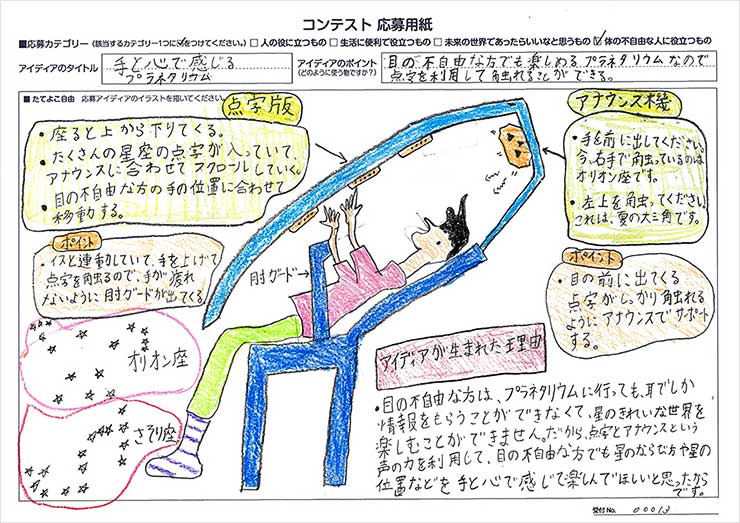 コンテスト 応募用紙
■応募カテゴリー（該当するカテゴリー1つに✓をつけてください。） □ 人の役に立つもの □ 生活に便利で役立つもの □ 未来の世界であったらいいなと思うもの ☑ 体の不自由な人に役立つもの
アイディアのタイトル
手と心で感じる
プラネタリウム
アイディアのポイント
（どのように使う物ですか？）
目の不自由な方でも楽しめるプラネタリウムなので
点字を利用して触れることができる。
■たてよこ自由 応募アイディアのイラストを描いてください。
点字版
・座ると上から下りてくる。
・たくさんの星座の点字が入っていて、
アナウンスに合わせてスクロールしていく。
・目の不自由な方の手の位置に合わせて
移動する。
ポイント
・イスと連動していて、手を上げて
点字を触るので、手が疲れ
ないように肘ガードが出てくる
肘ガード
アナウンス機
・手を前に出してください。
今、右手で触っているのは
オリオン座です。
・左上を触ってください。
これは、夏の大三角です。
ポイント
・目の前に出てくる
点字がしっかり触れる
ようにアナウンスでサポート
する。
オリオン座
さそり座
アイディアが生まれた理由
・目の不自由な方は、プラネタリウムに行っても、耳でしか
情報をもらうことができなくて、星のきれいな世界を
楽しむことができません。だから、点字とアナウンスという
声の力を利用して、目の不自由な方でも星のならび方や星の
位置などを手と心で感じて楽しんでほしいと思ったから
です。
受付No. 00013